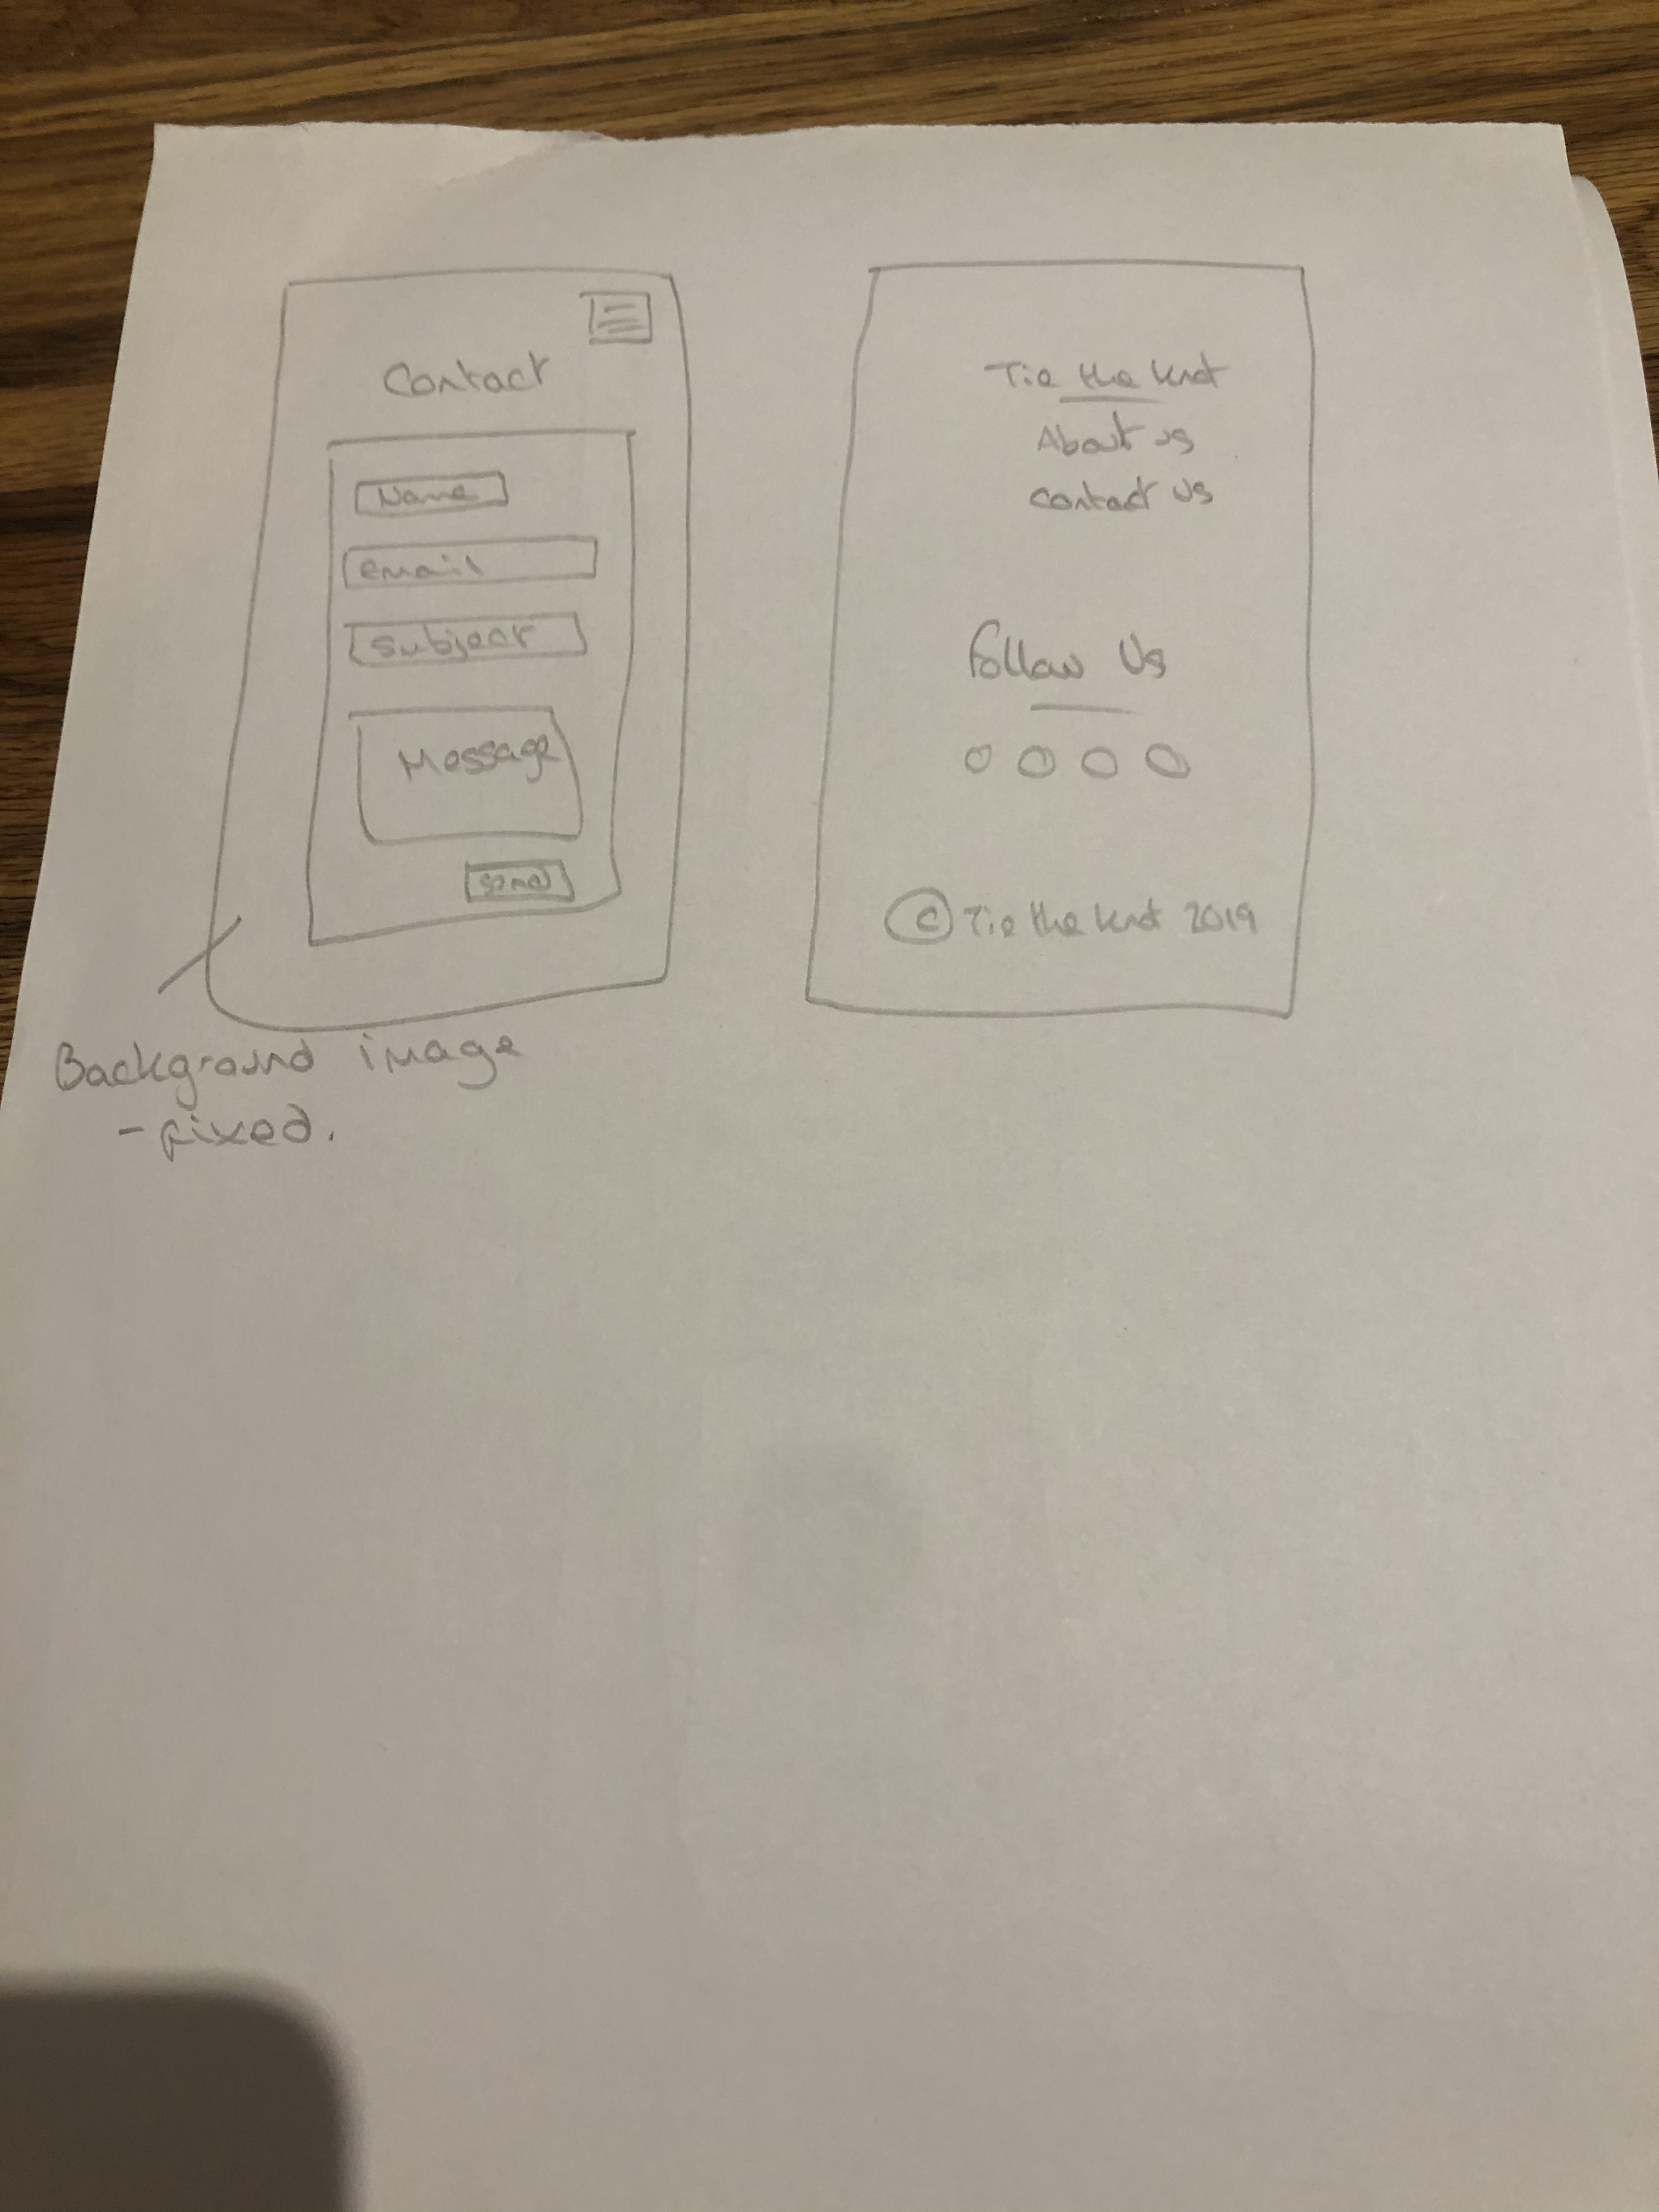 Contact
Name
email
subject
Message
send
Background image
- fixed.
Tie the knot
About us
Contact Us
Follow Us
© Tie the knot 2019